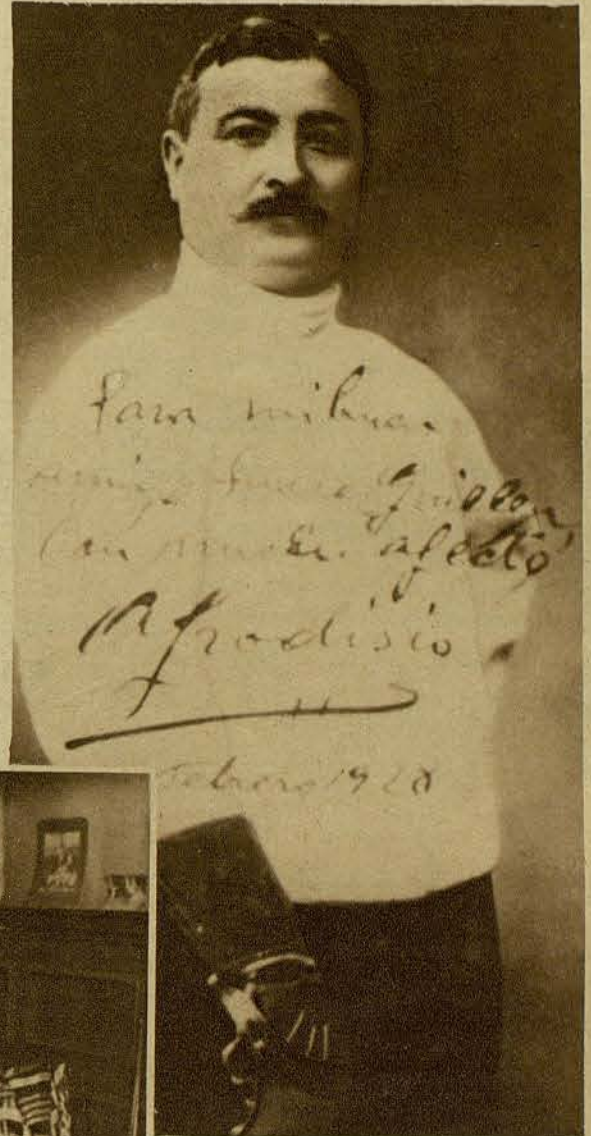 Para mi buen
amigo Guillen
Con mucho afecto
Afrodisio
Febrero 1928